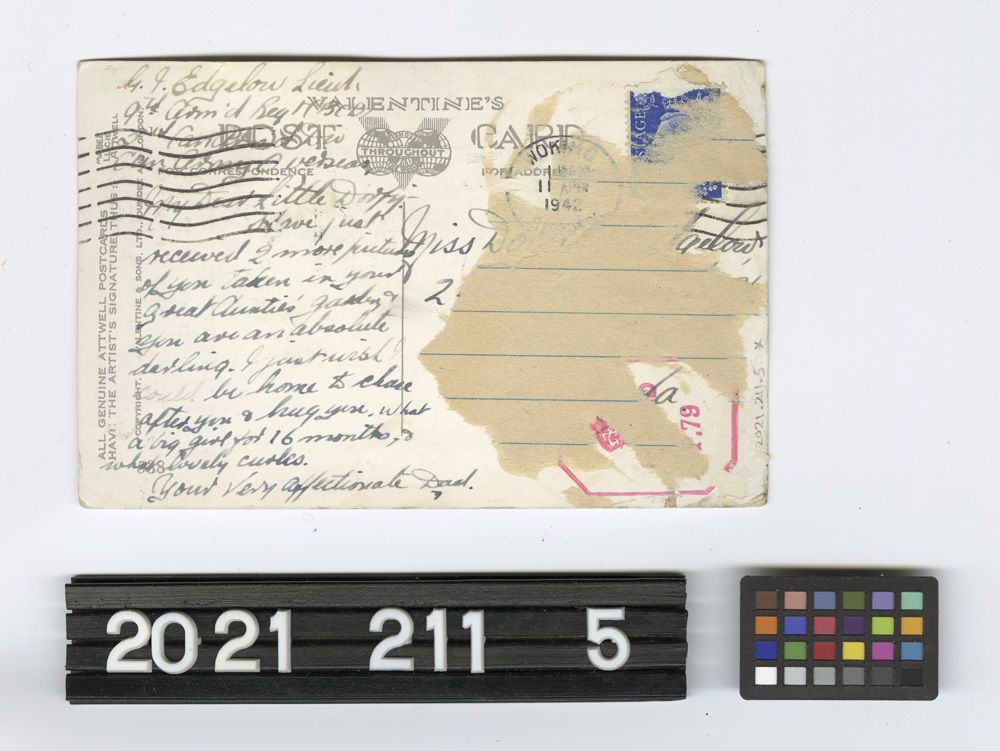 G. F. Edgelow Lieut.
9th Arm'd Reg't
Overseas
VALENTINE'S
POST CARD
THROUGHOUT
FOR CORRESPONDENCE
FOR ADDRESS
WOKING
11 APR
1942
My Dear Little Dorfy,
I've just
received 2 more pictures
of you taken in your
great Auntie's garden &
you are an absolute
darling. I just wish I
could be home to chase
after you & hug you. What
a big girl for 16 months, &
what lovely curles.
Your Very Affectionate Dad.
Miss Do
gelow
2
POSTAGE
.79
ALL GENUINE ATTWELL POSTCARDS
HAVE THE ARTIST'S SIGNATURE THUS:
ATTWELL
COPYRIGHT. VALENTINE & SONS, LTD., DUNDEE AND LONDON
2021.211.5 x
2021 211 5